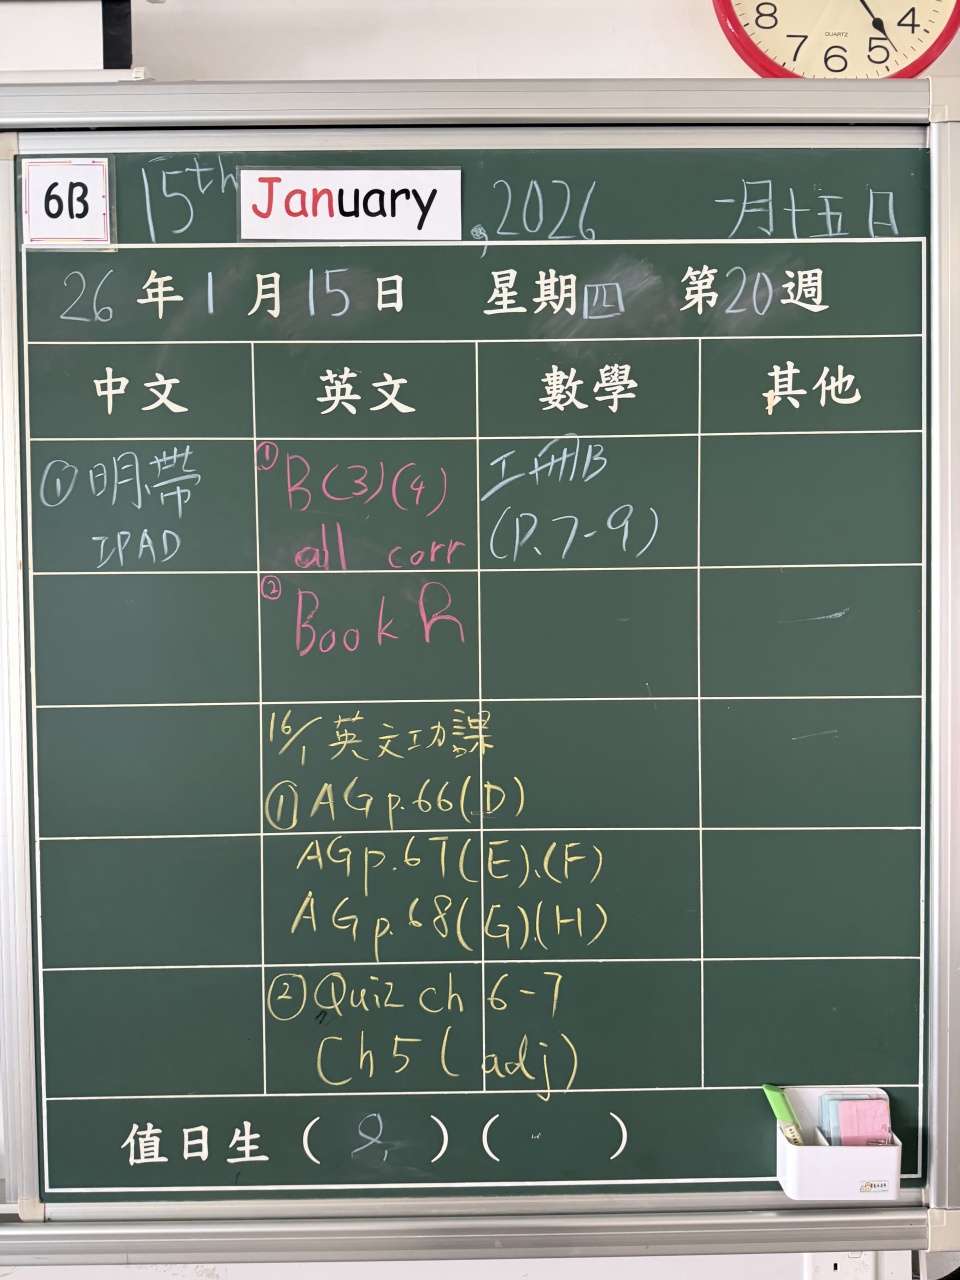 8 7 6 5 4
QUARTZ
6B 15th January, 2026 一月十五日
26年1月15日 星期四 第20週
中文 英文 數學 其他
① 明帶 ① B(3)(4) 工冊B
IPAD all corr (P.7-9)
② Book R
16/1 英文功課
① AG p.66(D)
AG p.67(E).(F)
AG p.68(G).(H)
② Quiz ch 6-7
Ch5 (adj)
值日生 ( ) ( )